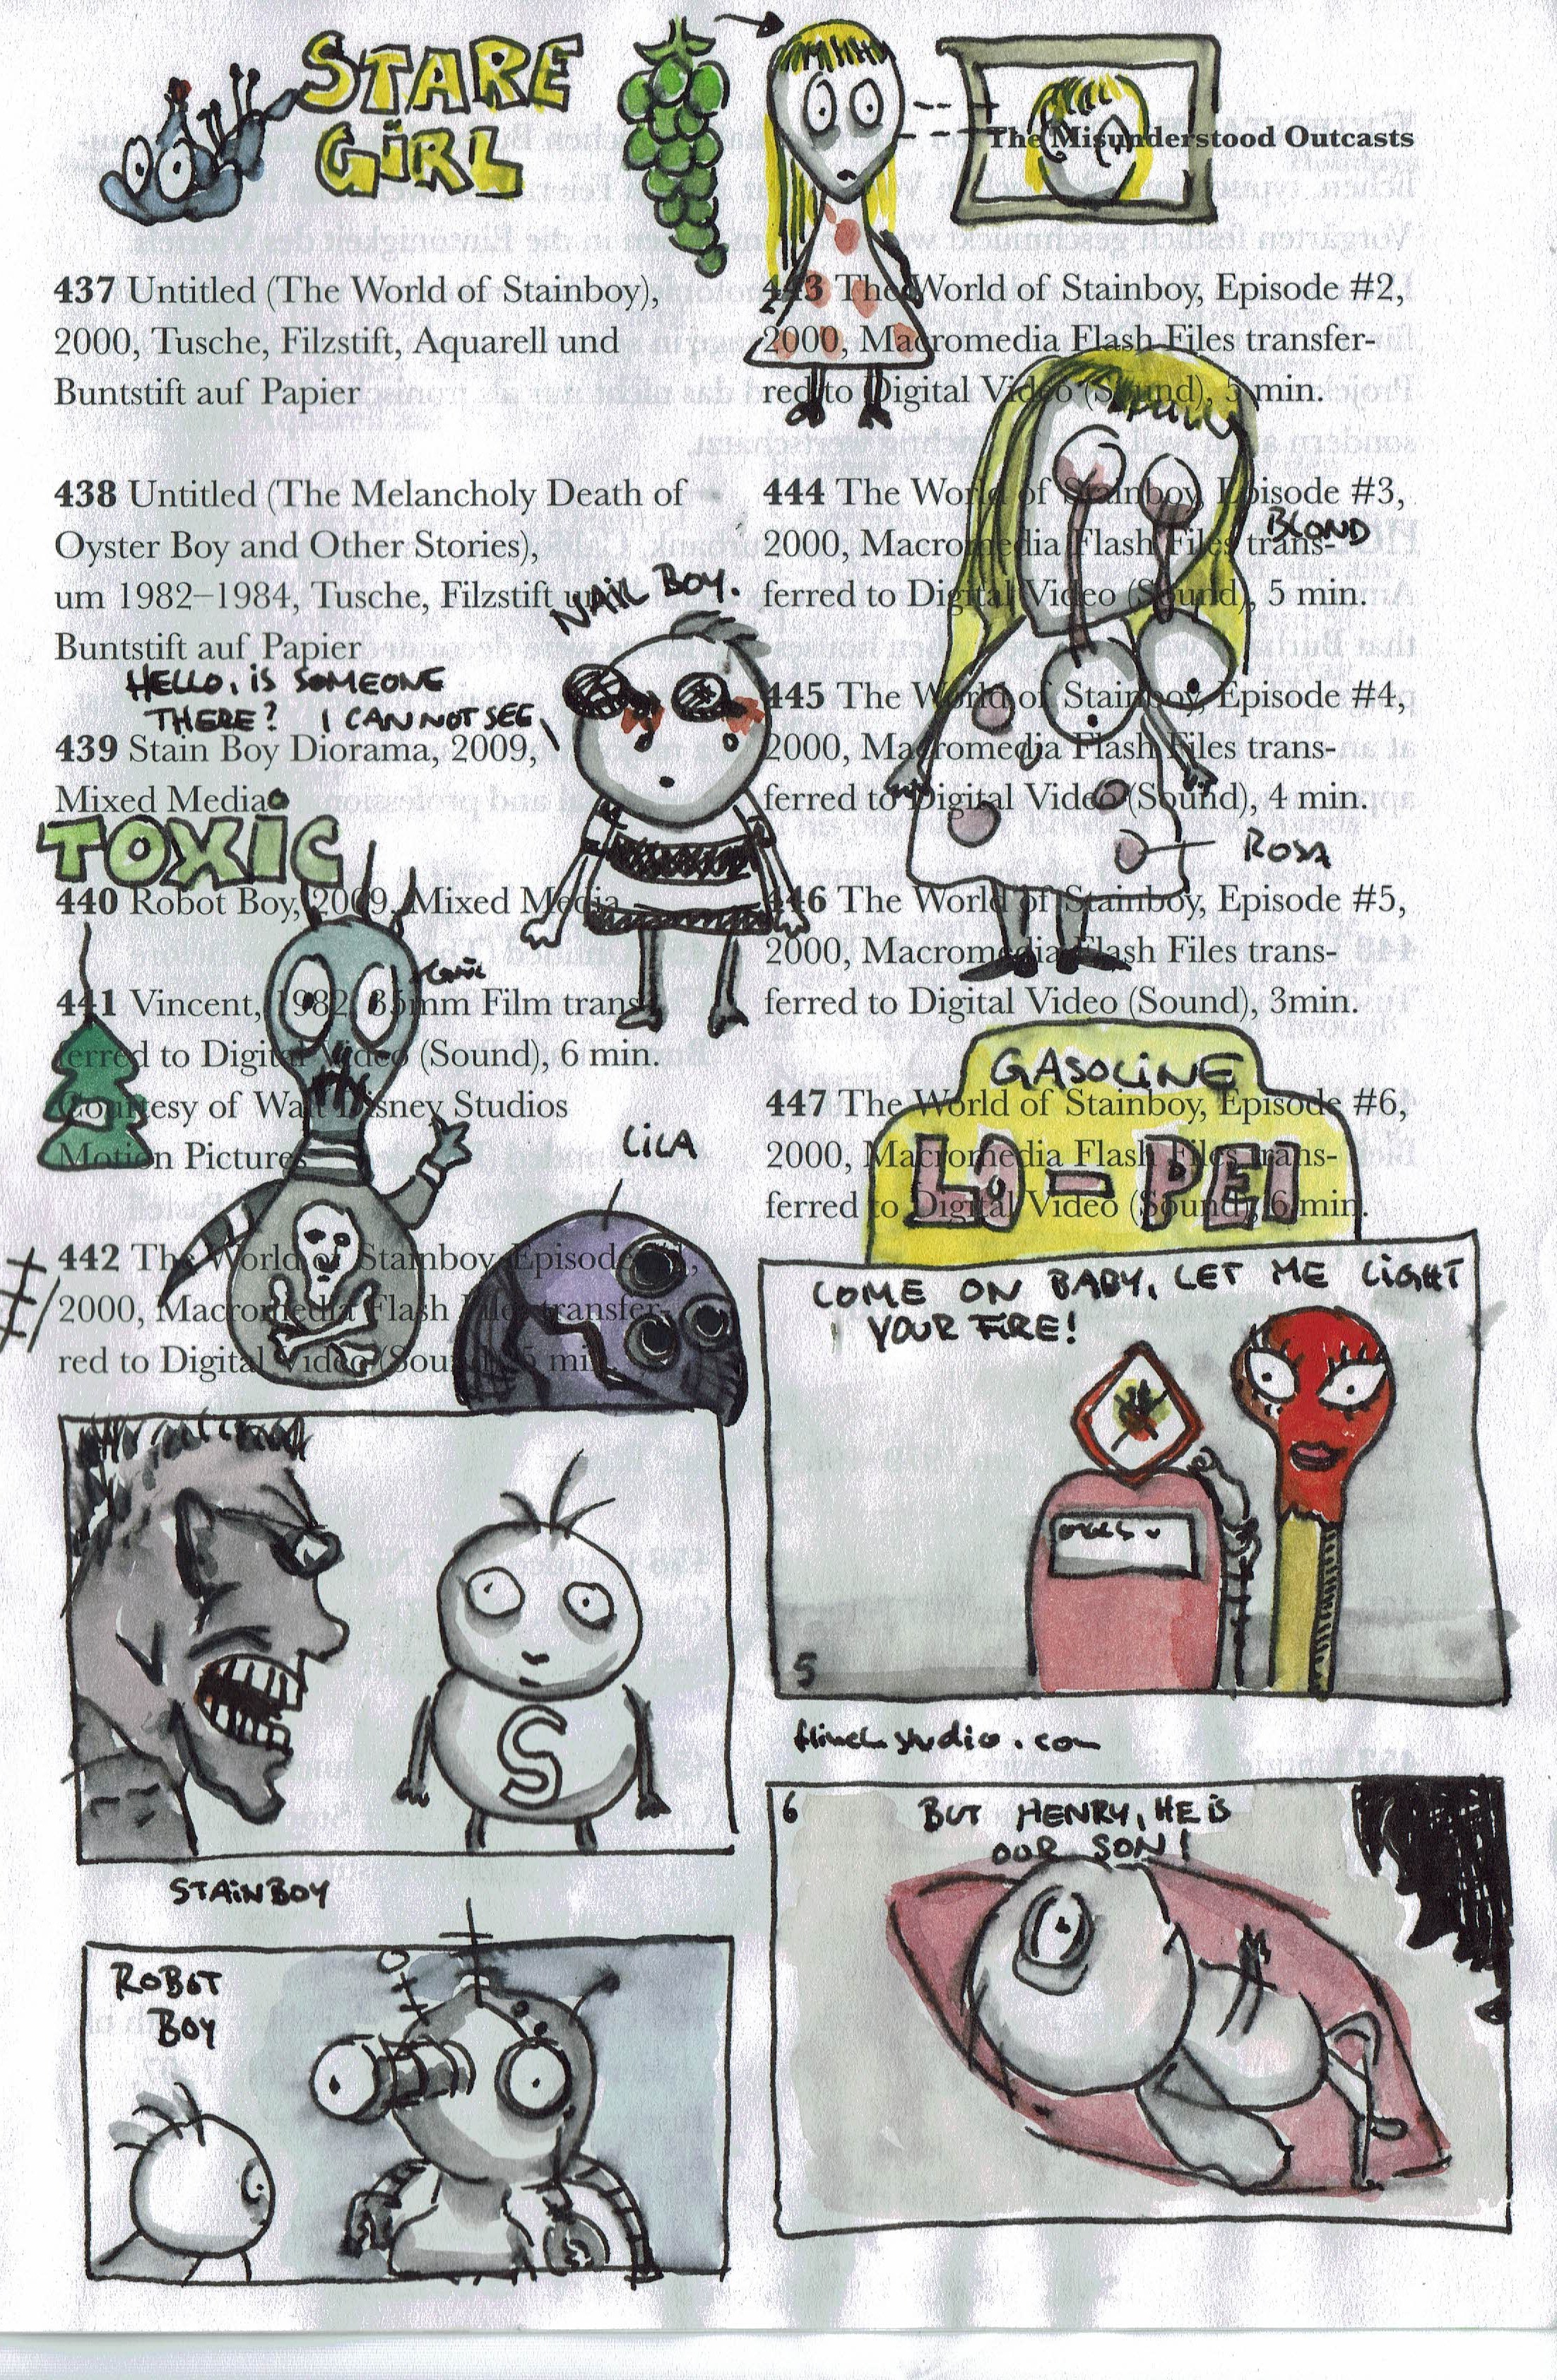 STARE
GIRL
The Misunderstood Outcasts
437 Untitled (The World of Stainboy),
2000, Tusche, Filzstift, Aquarell und
Buntstift auf Papier
438 Untitled (The Melancholy Death of
Oyster Boy and Other Stories),
um 1982–1984, Tusche, Filzstift und
Buntstift auf Papier
NAIL BOY.
HELLO, IS SOMEONE
THERE? I CAN NOT SEE
439 Stain Boy Diorama, 2009,
Mixed Media
TOXIC
440 Robot Boy, 2009, Mixed Media
441 Vincent, 1982, 35mm Film trans-
ferred to Digital Video (Sound), 6 min.
Courtesy of Walt Disney Studios
Motion Pictures
LILA
442 The World of Stainboy, Episode #1,
2000, Macromedia Flash Files transfer-
red to Digital Video (Sound), 5 min.
STAINBOY
S
ROBOT
BOY
443 The World of Stainboy, Episode #2,
2000, Macromedia Flash Files transfer-
red to Digital Video (Sound), 5 min.
444 The World of Stainboy, Episode #3,
2000, Macromedia Flash Files trans-
ferred to Digital Video (Sound), 5 min.
BLOND
445 The World of Stainboy, Episode #4,
2000, Macromedia Flash Files trans-
ferred to Digital Video (Sound), 4 min.
ROSA
446 The World of Stainboy, Episode #5,
2000, Macromedia Flash Files trans-
ferred to Digital Video (Sound), 3min.
447 The World of Stainboy, Episode #6,
2000, Macromedia Flash Files trans-
ferred to Digital Video (Sound), 6 min.
GASOLINE
LO-PEI
COME ON BABY, LET ME LIGHT
YOUR FIRE!
5
flinchstudio.com
6
BUT HENRY, HE IS
OUR SON!